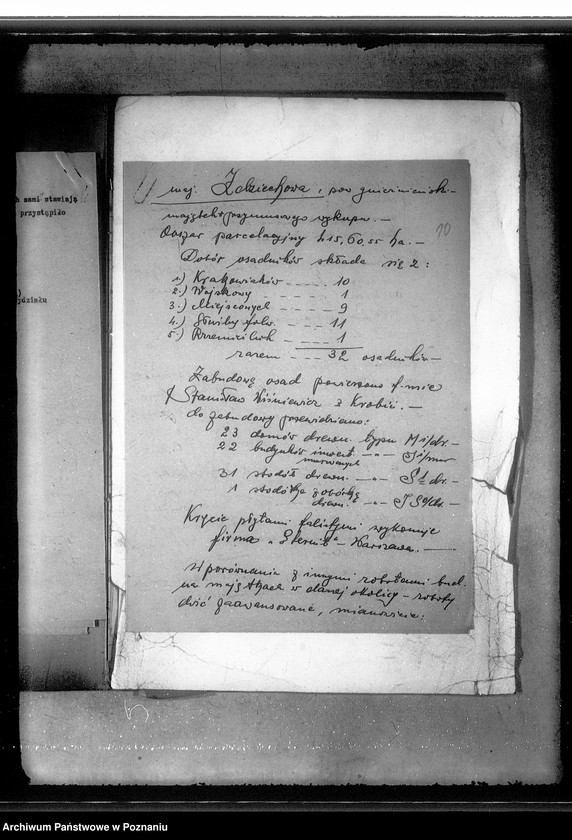 h sami stawiają
przystąpiło
ździnku
10
maj. Zdziechowa, pow gnieźnieńsk.
majątek przymusowego wykupu. —
Obszar parcelacyjny 415,60,55 ha. —
Dobór osadników składa się z:
1.) Krakowiaków - - - - 10
2.) Wojskowy - - - - 1
3.) Miejscowych - - - 9
4.) Służby folw. - - - 11
5.) Rzemieślnik - - - 1
razem - - - 32 osadników —
Zabudowę osad powierzono f-mie
Stanisław Wiśniewicz z Krobii. —
do zabudowy przewidziano:
23 domów drewn. typu M i/dr. —
22 budynków inwent. — " — I i/mur
murowanych
31 stodół drewn. — " — S dr. —
1 stodółka z obórką
drewn. — " — I S0/dr. —
Krycie płytami falistymi wykonuje
firma „Eternit" — Warszawa. —
W porównaniu z innymi robotami bud.
na majątkach w danej okolicy — roboty
dość zaawansowane, mianowicie:
Archiwum Państwowe w Poznaniu